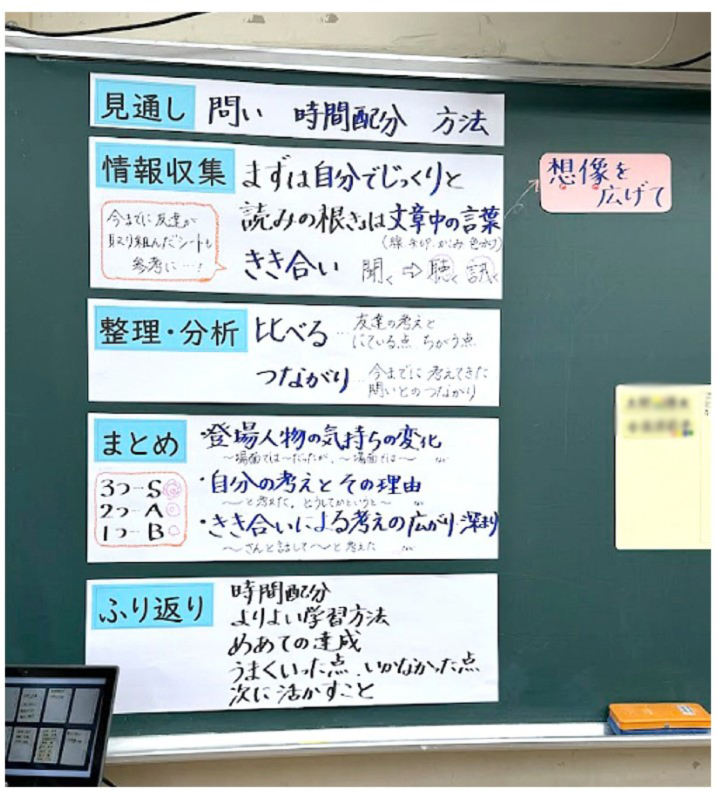 見通し 問い 時間配分 方法
情報収集 まずは自分でじっくりと
読みの根きは文章中の言葉
(線 矢印 かこみ 色分け)
今までに友達が
取り組んだシートも
参考に…!
きき合い 聞く⇨聴く 訊く
想像を
広げて
整理・分析 比べる…友達の考えと
にている点 ちがう点
つながり…今までに考えてきた
問いとのつながり
まとめ ・登場人物の気持ちの変化
〜場面では〜だったが、〜場面では〜
3つ…S
2つ…A
1つ…B
・自分の考えとその理由
〜と考えた。どうしてかというと〜
・きき合いによる考えの広がり・深まり
〜さんと話して〜と考えた
ふり返り 時間配分
よりよい学習方法
めあての達成
うまくいった点、いかなかった点
次に活かすこと